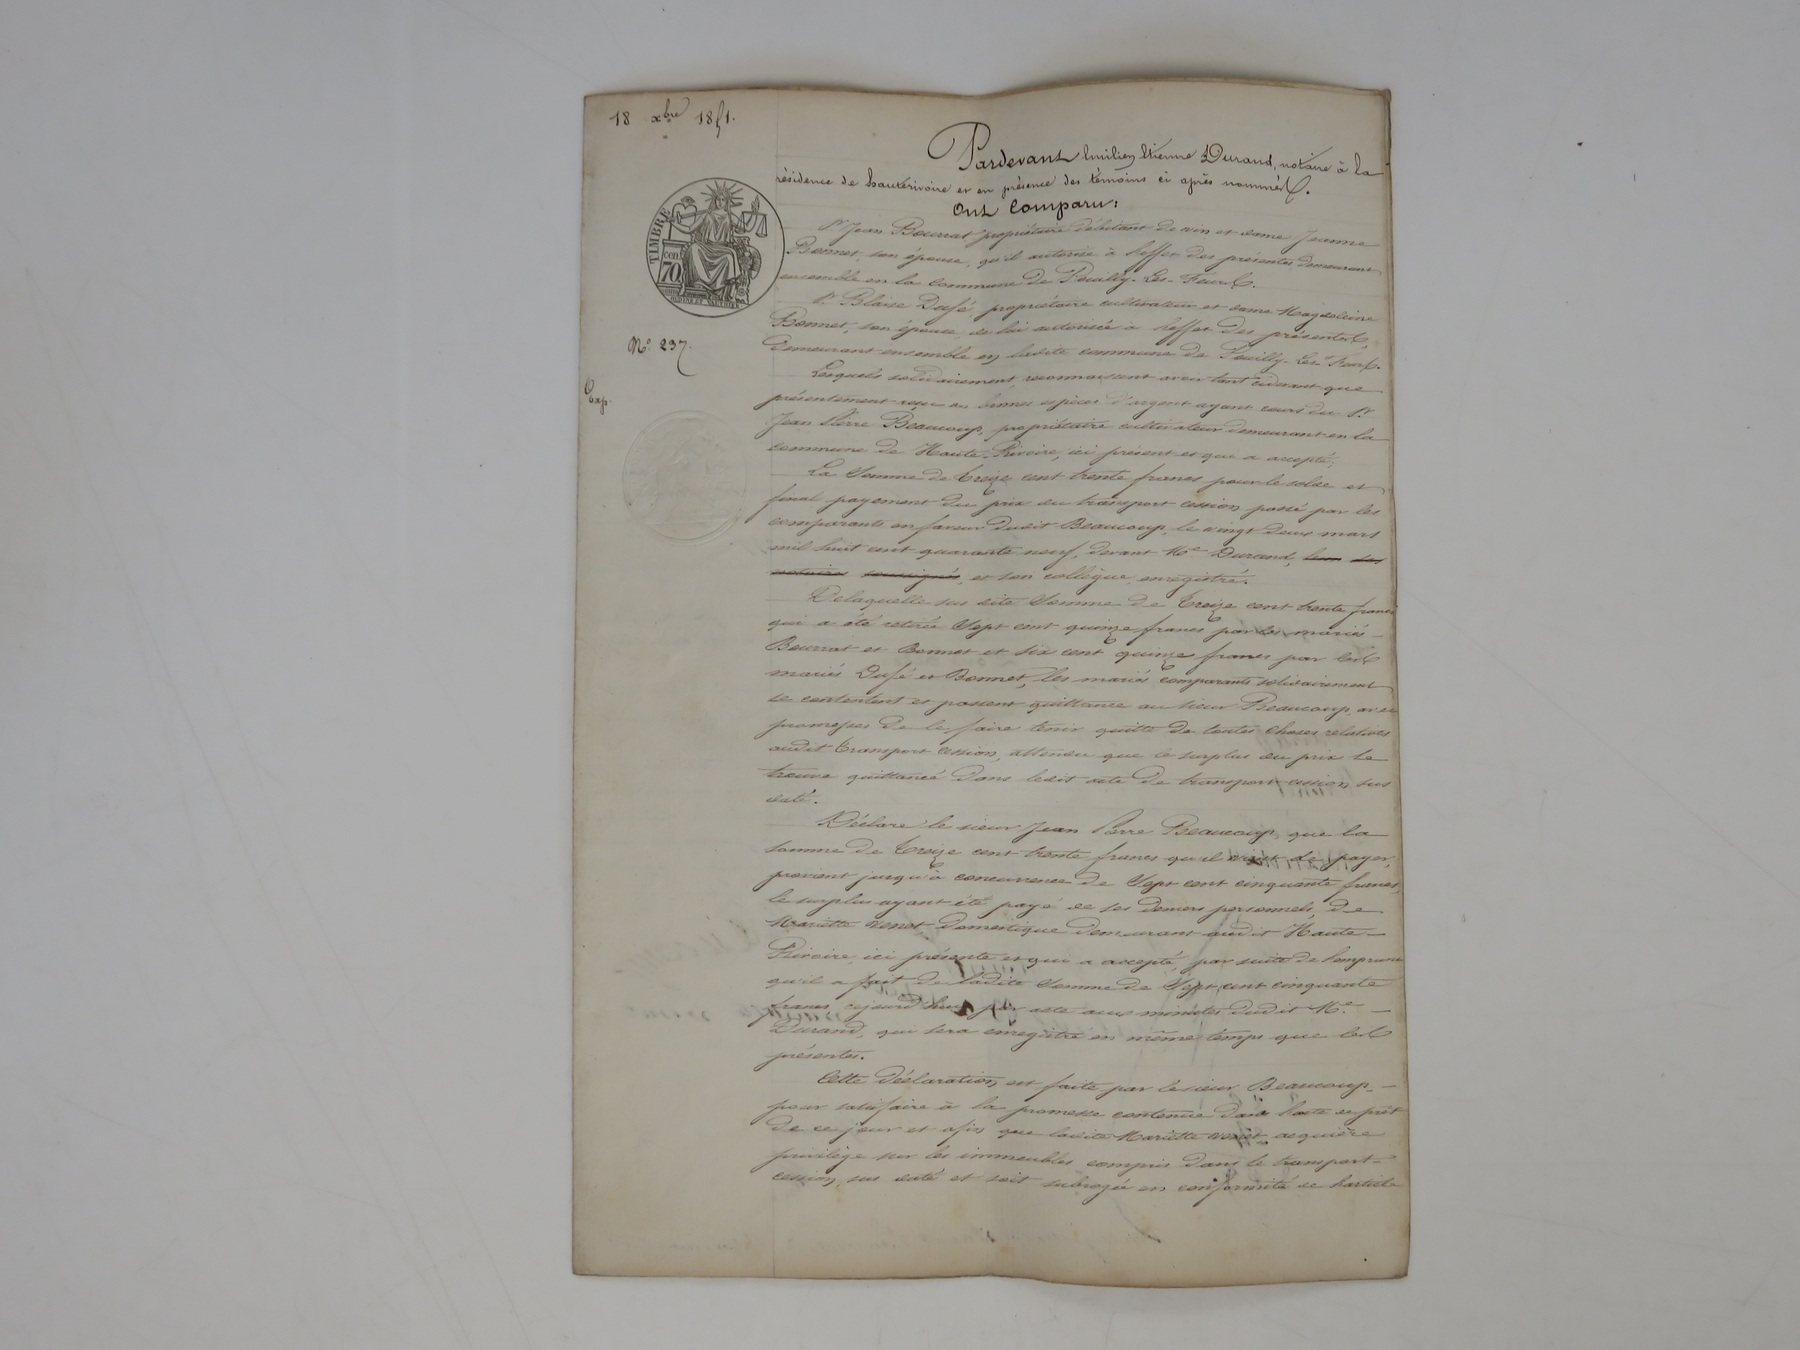 18 xbre 1851.
TIMBRE
70
No 237.
Exp.
Pardevant Emilien Etienne Durand, notaire à la
résidence de hauterivoire et en présence des témoins ci après nommés.
Ont Comparu:
Sr Jean Bourrat propriétaire débitant de vin et dame Jeanne
Bonnet, son épouse, qu'il autorise à l'effet des présentes demeurant
ensemble en la Commune de Pouilly-les-Feurs.
Sr Blaise Dufé, propriétaire cultivateur et dame Magdeleine
Bonnet, son épouse, de lui autorisée à l'effet des présentes,
Demeurant ensemble en ladite commune de Pouilly-les-Feurs.
Lesquels solidairement, reconnaissent avoir tant cidevant que
présentement reçu en bonnes espèces d'argent ayant cours du Sr
Jean Pierre Beaucoup, propriétaire cultivateur demeurant en la
commune de Haute-Rivoire, ici présent et que a accepté,
La Somme de treize cent trente francs pour le solde et
final payement du prix du transport cession passé par les
comparants en faveur dudit Beaucoup, le vingt deux mars
mil huit cent quarante neuf, devant Me Durand,
notaires soussignés, et son collègue, enregistré.
Delaquelle sus dite Somme de Treize cent trente francs
qui a été retirée Sept cent quinze francs par les mariés
Bourrat et Bonnet et six cent quinze francs par les
mariés Dufé et Bonnet, les mariés comparants solidairement
se contentent et passent quittance au sieur Beaucoup, avec
promesses de le faire tenir quitte de toutes choses relatives
audit transport cession, attendu que le surplus du prix se
trouve quittancé dans ledit acte de transport cession sus
daté.
Déclare le sieur Jean Pierre Beaucoup, que la
somme de Treize cent trente francs qu'il vient de payer,
provient jusqu'à concurrence de Sept cent cinquante francs,
le surplus ayant été payé de ses deniers personnels, de
Mariette Domestique demeurant audit Haute-
Rivoire, ici présente et qui a accepté, par suite de l'emprunt
qu'il a fait de ladite Somme de Sept cent cinquante
francs, aujourd'hui par acte aux minutes dudit Me
Durand, qui sera enregistré en même temps que les
présentes.
Cette déclaration est faite par le sieur Beaucoup,
pour satisfaire à la promesse contenue dans l'acte de prêt
de ce jour et afin que ladite Mariette acquière
privilège sur les immeubles compris dans le transport-
cession sus daté et soit subrogée en conformité de l'article